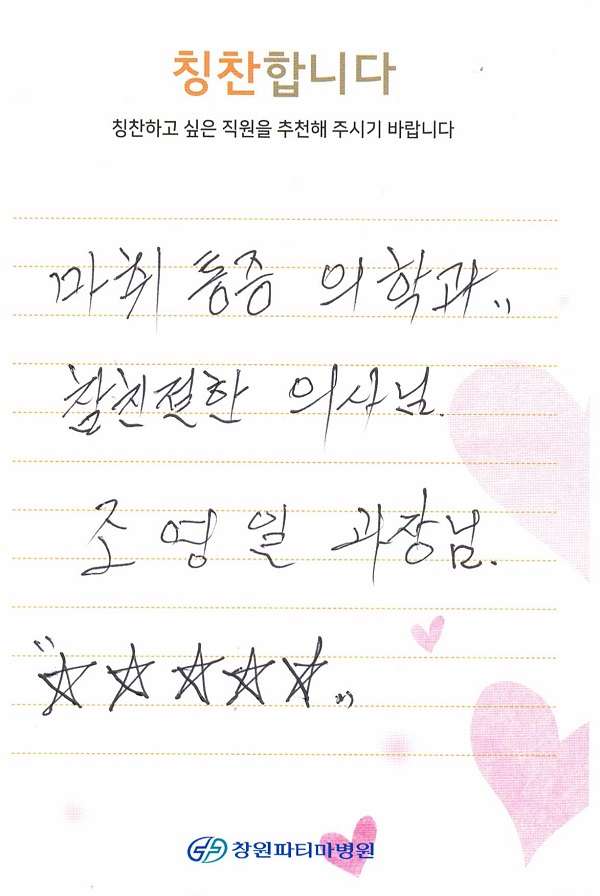 칭찬합니다
칭찬하고 싶은 직원을 추천해 주시기 바랍니다
마취 통증 의학과"
참친절한 의사님.
조영일 과장님.
"☆☆☆☆☆"
창원파티마병원